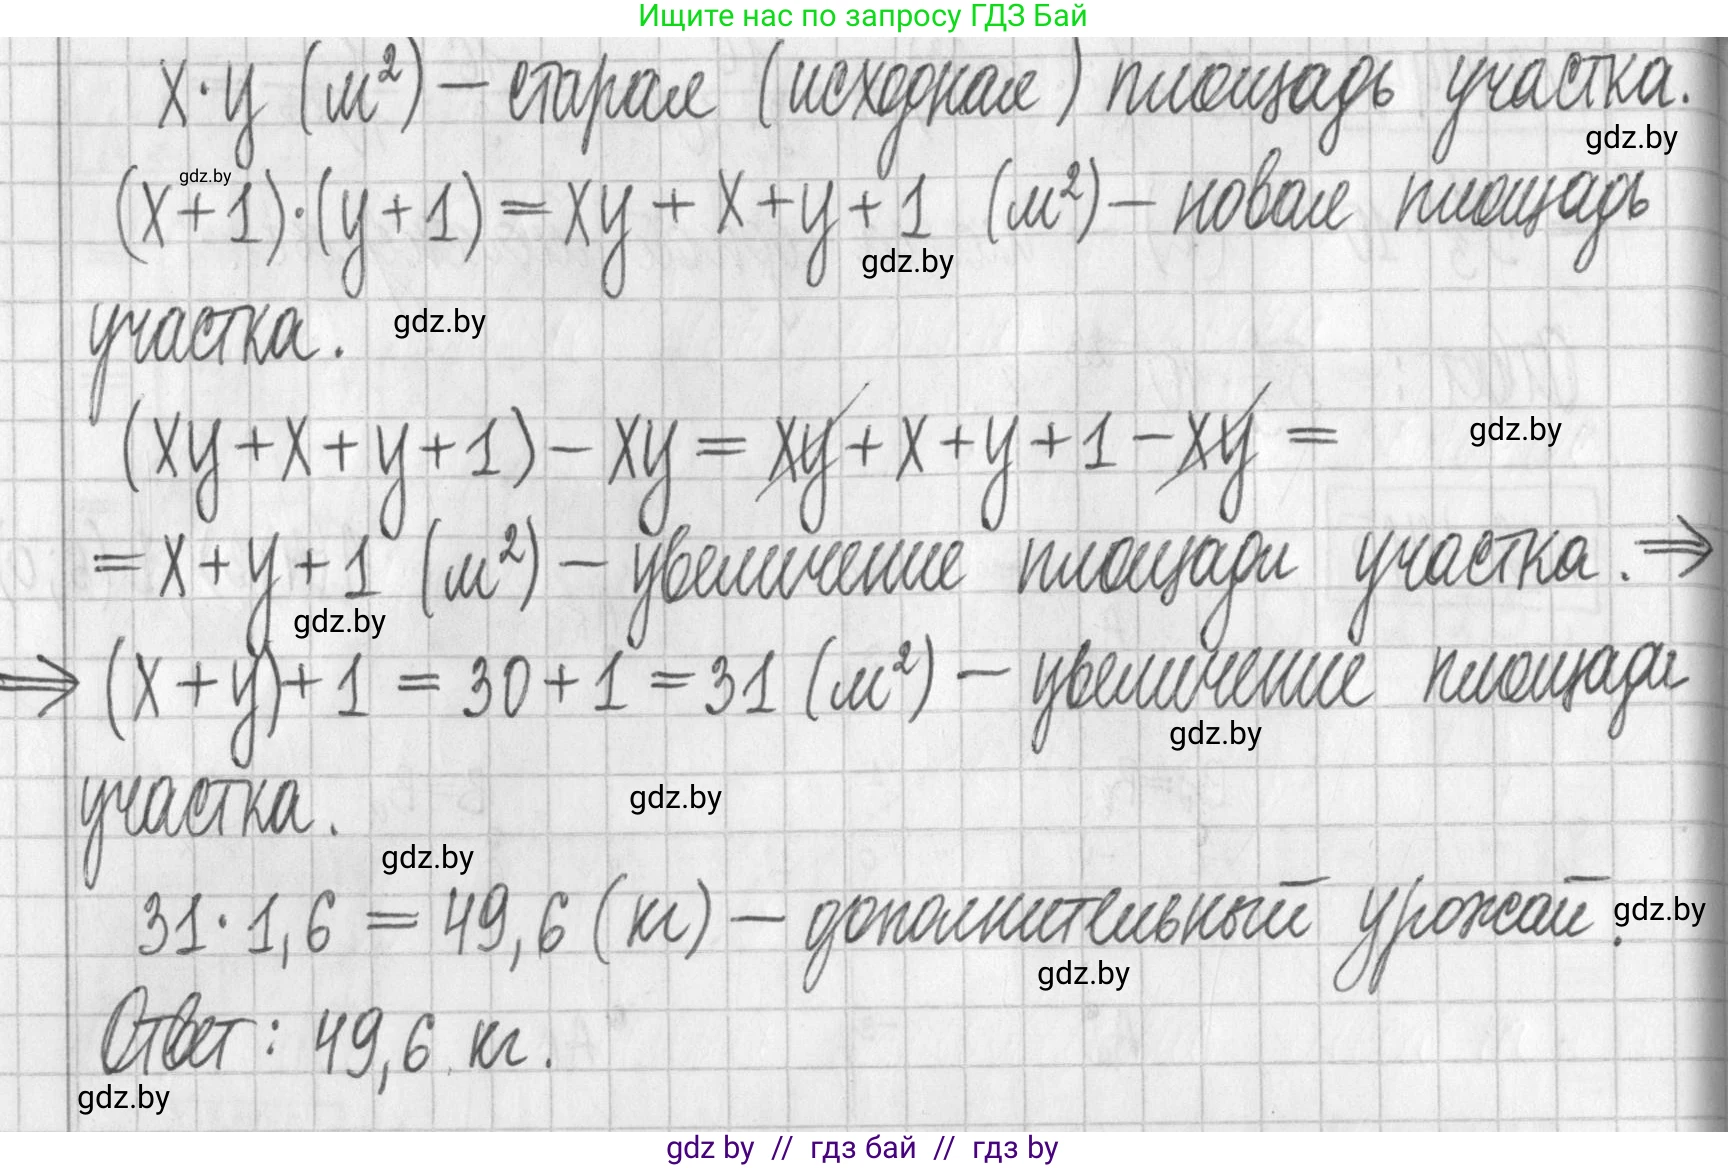 Ищите нас по запросу ГДЗ Бай
x·y (м²) – старая (исходная) площадь участка.
gdz.by
gdz.by
(x+1)·(y+1) = xy + x + y + 1 (м²) – новая площадь
gdz.by
участка.
gdz.by
(xy + x + y + 1) – xy = xy + x + y + 1 – xy =
gdz.by
= x + y + 1 (м²) – увеличение площади участка. ⇒
gdz.by
⇒ (x + y) + 1 = 30 + 1 = 31 (м²) – увеличение площади
gdz.by
участка.
gdz.by
gdz.by
31 · 1,6 = 49,6 (кг) – дополнительный урожай.
gdz.by
gdz.by
Ответ: 49,6 кг.
gdz.by
gdz by // гдз бай // гдз by